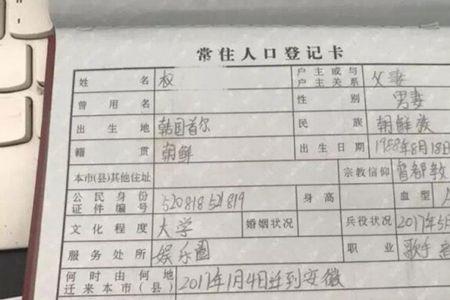 常住人口登记卡
姓名 权 户主或与户主关系 父妻
曾用名 性别 男妻
出生地 韩国首尔 民族 朝鲜族
籍贯 朝鲜 出生日期 1988年8月18日
本市(县)其他住址 宗教信仰
公民身份证件编号 520818 521819 身高 血型
文化程度 大学 婚姻状况 兵役状况 2017年5月
服务处所 娱乐圈 职业 歌手
何时由何地迁来本市(县) 2017年1月4日迁到安徽